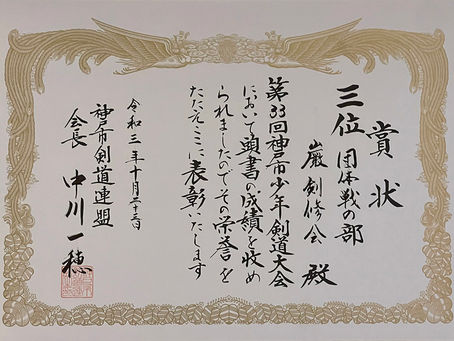 賞状
三位 団体戦の部
巌剣修会 殿
第33回神戸市少年剣道大会
において頭書の成績を收め
られましたのでその栄誉を
たたえここに表彰いたします
令和三年十月三十一日
神戸市剣道連盟
会長 中川一穂